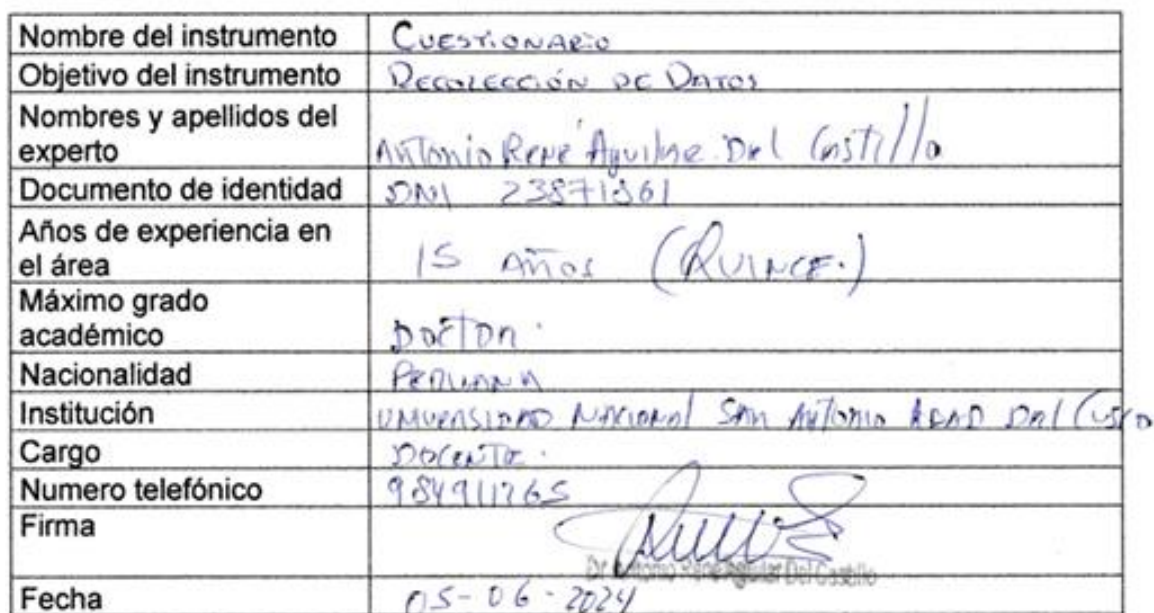 Nombre del instrumento CUESTIONARIO
Objetivo del instrumento RECOLECCIÓN DE DATOS
Nombres y apellidos del
experto Antonio René Aguilar Del Castillo
Documento de identidad DNI
Años de experiencia en
el área 15 AÑOS (QUINCE.)
Máximo grado
académico DOCTOR.
Nacionalidad PERUANA
Institución UNIVERSIDAD NACIONAL SAN ANTONIO ABAD DEL CUSCO
Cargo DOCENTE.
Numero telefónico
Firma
Dr. Antonio René Aguilar Del Castillo
Fecha 05-06-2024